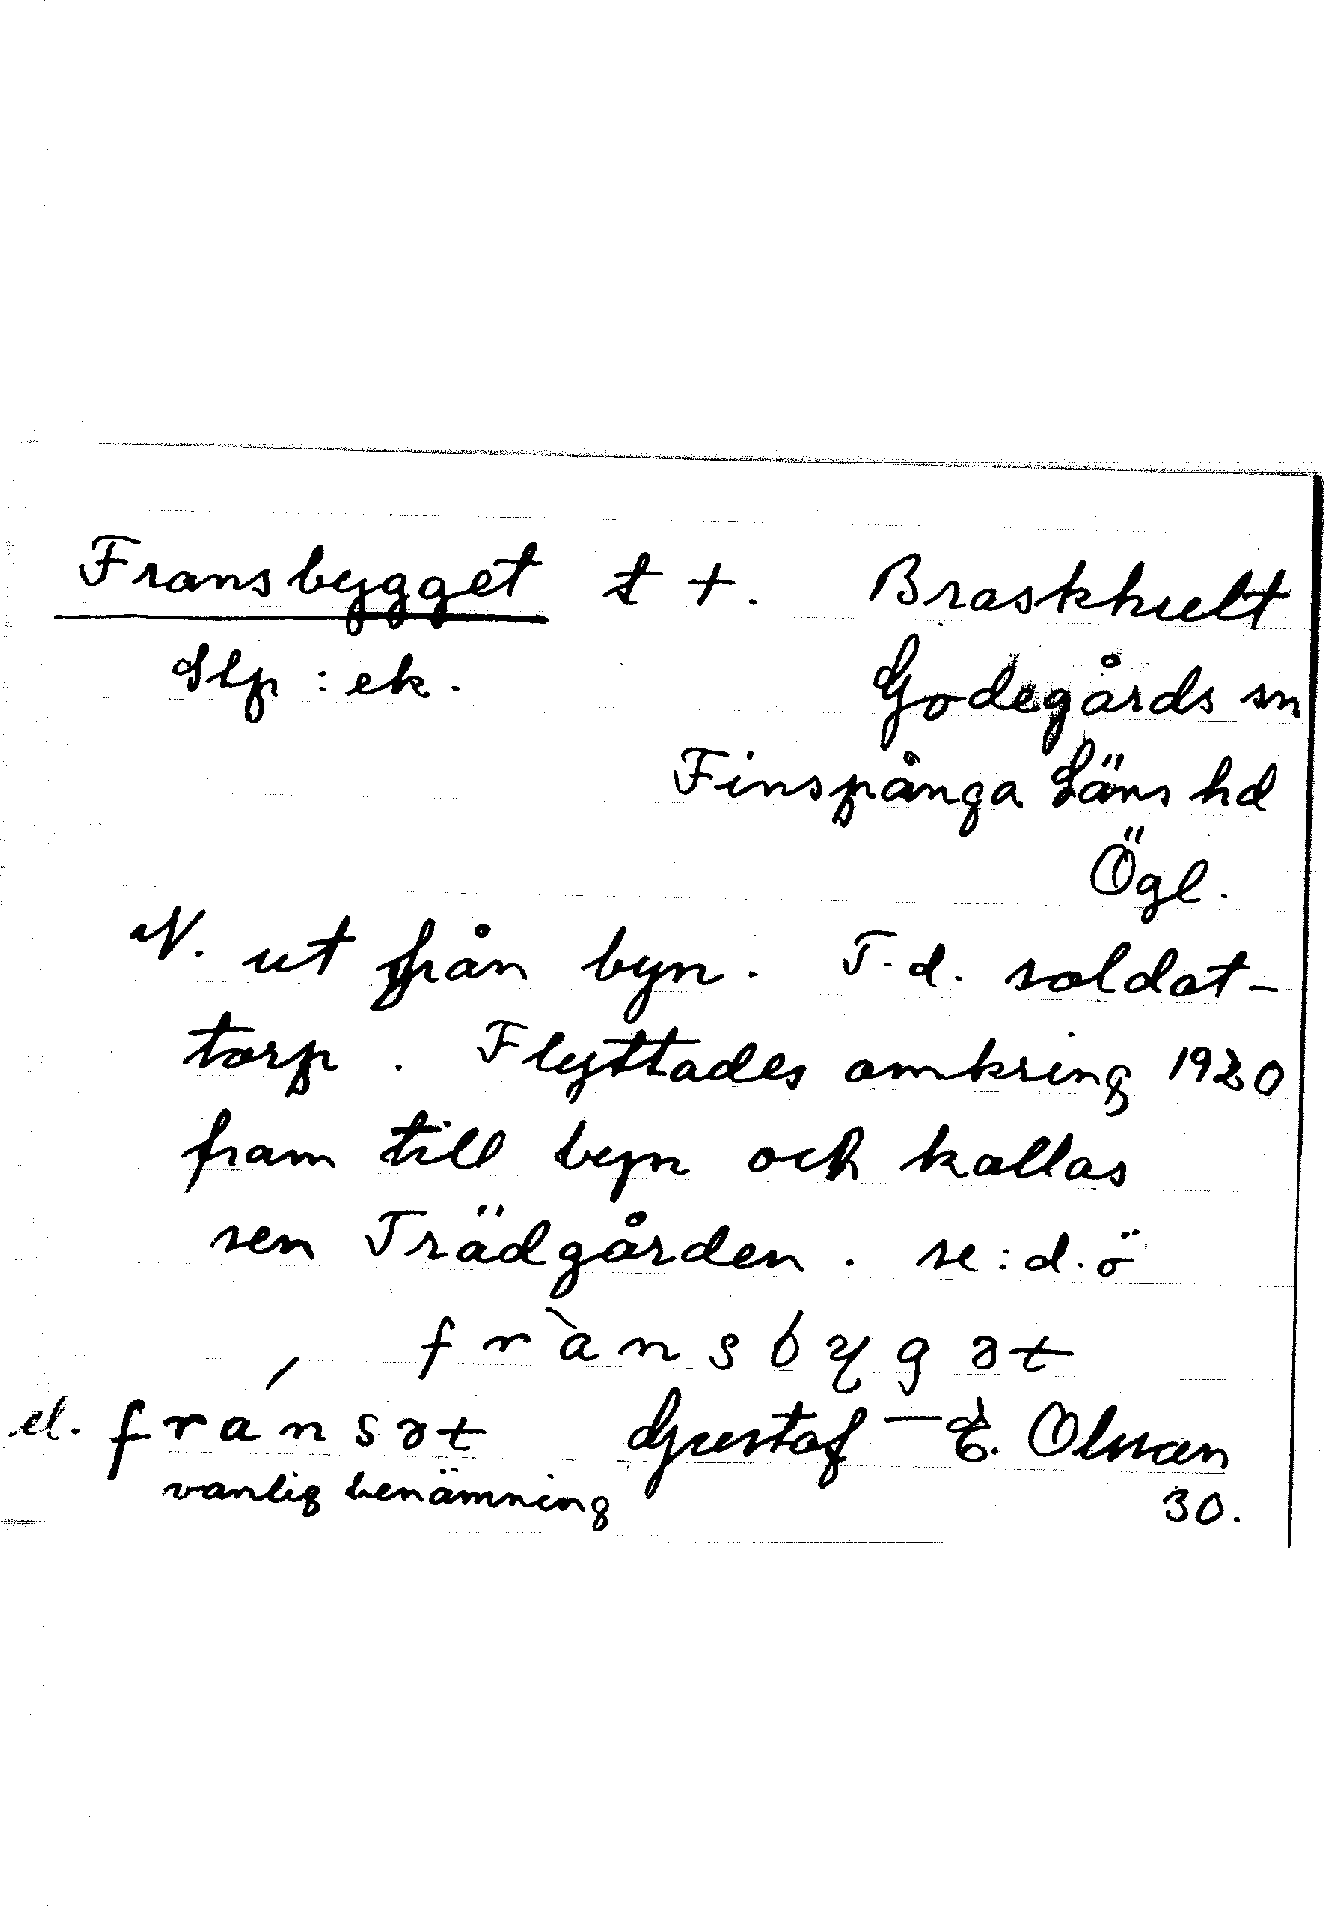 Fransbygget t +. Braskhult
Slp : ek. Godegårds sn
Finspånga Läns hd
Ögl.
N. ut från byn. T.d. soldat-
torp. Flyttades omkring 1920
fram till byn och kallas
sen Trädgården. se : d.ö
frànsbygət
el. fránsət Gustaf E. Olsson
vanlig benämning 30.